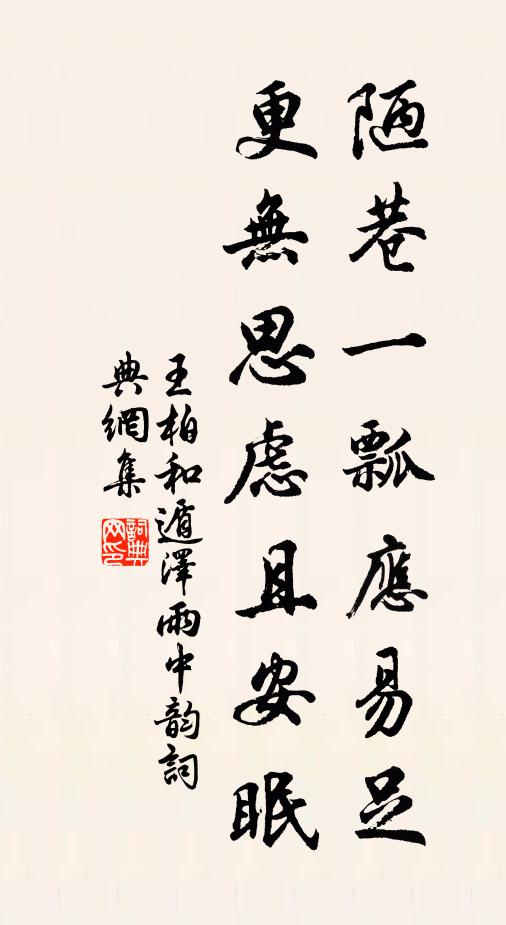 陋巷一瓢應易足
更無思慮且安眠
王柏和遁澤雨中韵詞
典網集
詞典
网印